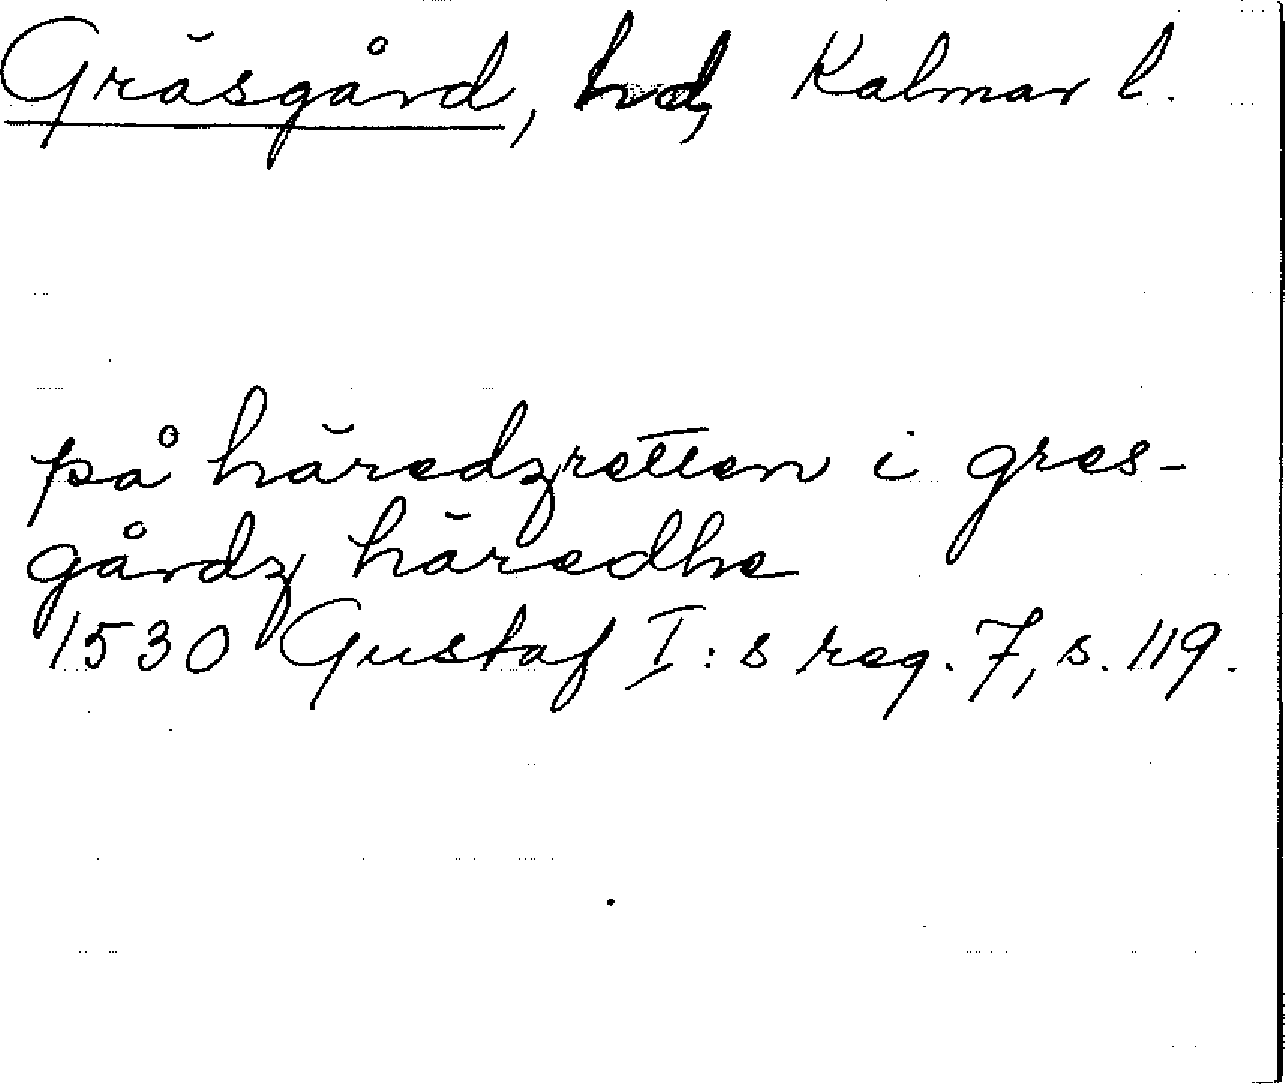 Gräsgård, hd, Kalmar l.
på häredzretten i gres-
gårdz häredhe
1530 Gustaf I:s reg. 7, s. 119.